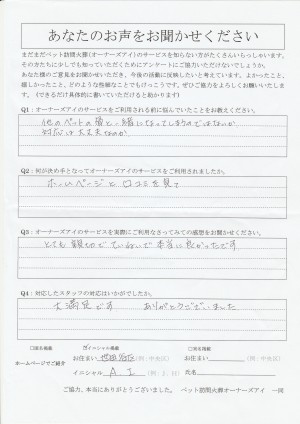 あなたのお声をお聞かせください
まだまだペット訪問火葬(オーナーズアイ)のサービスを知らない方がたくさんいらっしゃいます。
その方たちに少しでも知っていただくためにアンケートにご協力いただけないでしょうか。
あなた様のご意見をお聞かせいただき、今後の活動に反映したいと考えています。よかったこと、
嬉しかったこと、どのような些細なことでもけっこうです。ぜひご協力をよろしくお願いいたします。
(できるだけ具体的に書いていただけると助かります)
Q1:オーナーズアイのサービスをご利用される前に悩んでいたことをお教えください。
他のペットの骨と一緒になってしまうのではないか
対応は大丈夫なのか
Q2:何が決め手となってオーナーズアイのサービスをご利用されましたか。
ホームページと口コミを見て
Q3:オーナーズアイのサービスを実際にご利用なさってみての感想をお聞かせください。
とても親切でていねいで本当に良かったです
Q4:対応したスタッフの対応はいかがでしたか。
大満足です ありがとうございました
□匿名掲載 イニシャル掲載 □実名掲載
ホームページでご紹介
お住まい 世田谷区 (例:中央区) お住まい (例:中央区)
イニシャル A.I (例:J.H) 氏名
ご協力、本当にありがとうございました。 ペット訪問火葬オーナーズアイ 一同